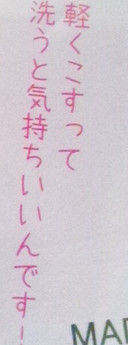 軽くこすって
洗うと気持ちいいんです！
MAD